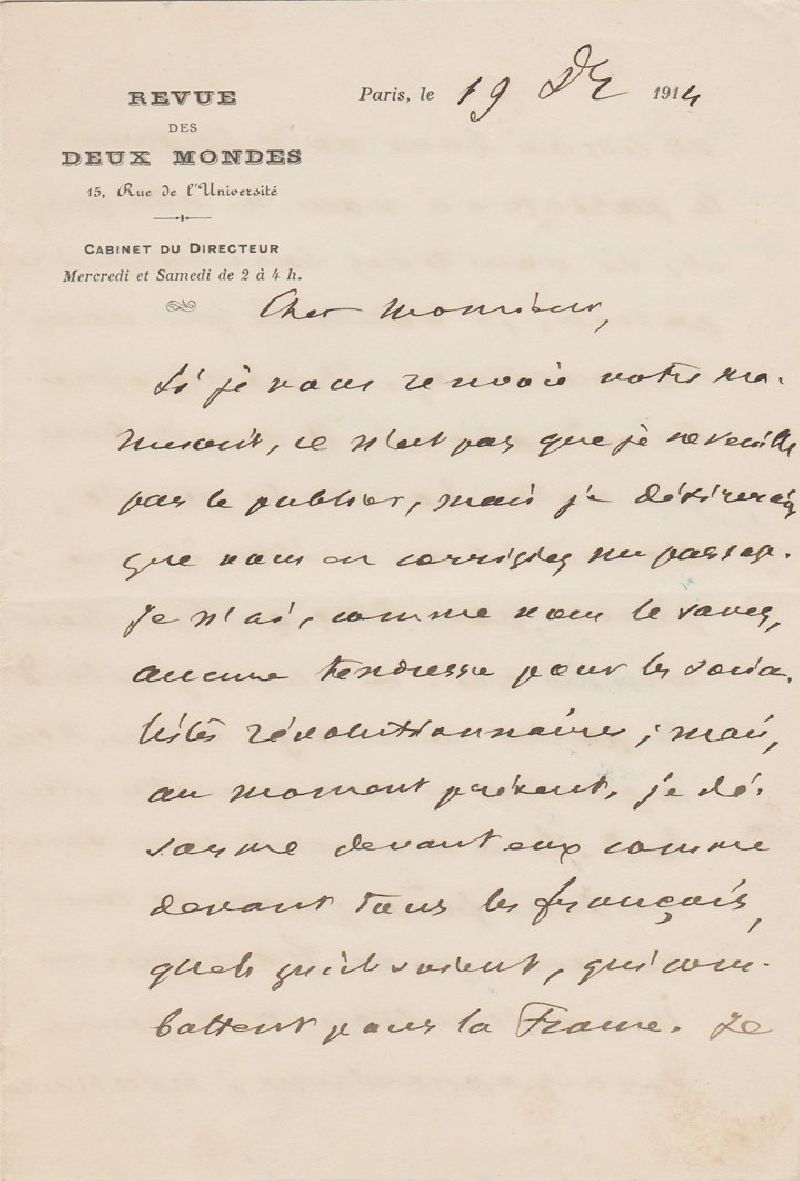 REVUE
DES
DEUX MONDES
15, Rue de l'Université
CABINET DU DIRECTEUR
Mercredi et Samedi de 2 à 4 h.
Paris, le 19 Dé 1914
Cher Monsieur,
Si je vous renvoie votre ma-
nuscrit, ce n'est pas que je ne veuille
pas le publier, mais je désirerais
que vous en corrigiez un passage.
Je n'ai, comme vous le savez,
aucune tendresse pour les socia-
listes révolutionnaires ; mais,
au moment présent, je dé-
sarme devant eux comme
devant tous les français,
quels qu'ils soient, qui com-
battent pour la France. Je